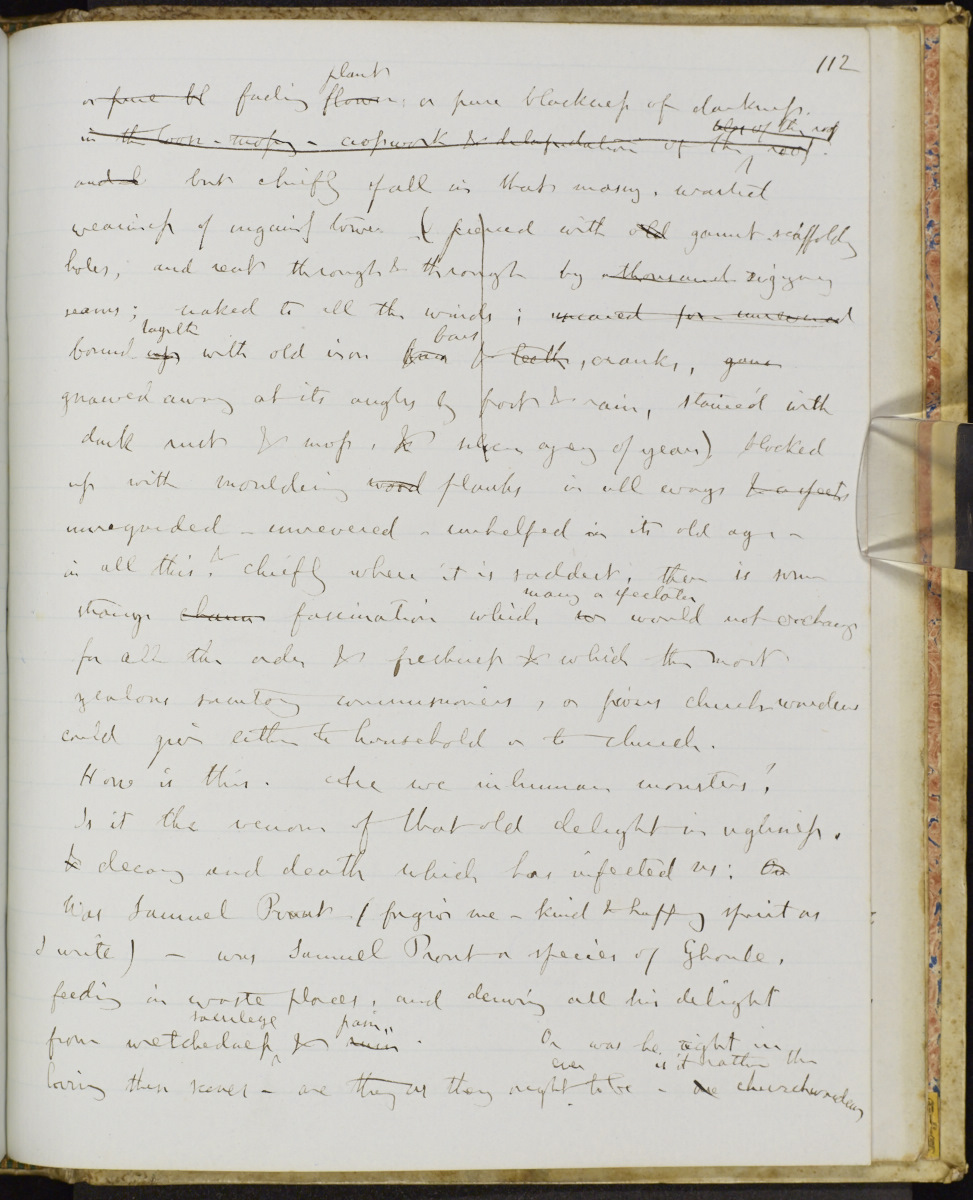 112
plant
or pure bl fading flower, or pure blackness of darkness.
blox of the roof
in the loose-mossy - crosswork & delapidation of the roof.
and l but chiefly of all in that mossy, wasted
weariness of ungainly tower (pierced with old gaunt scaffolding
holes, and rent through & through by thousand zigzag
seams; naked to all the winds; uncared for unrevered
together bars
bound up with old iron bars & teeth, cranks, gaun
gnawed away at its angles by frost & rain, stained with
dark rust & moss, & silken agony of years) blocked
up with mouldering wood planks in all ways & aspects
unregarded - unrevered - unhelped in its old age -
in all this, & chiefly where it is saddest, there is some
many a spectator
strange charm fascination which we would not exchange
for all the order & freshness & which the most
zealous sanitary commissioners, or pious churchwardens
could give either to household or to church.
How is this. Are we inhuman monsters!
Is it the venom of that old delight in ugliness,
& decay and death which has infected us: Or
Was Samuel Prout (forgive me - kind & happy spirit as
I write) - was Samuel Prout a species of Ghoule,
feeding in waste places, and deriving all his delight
sacrilege pain,
from wretchedness & ruin. Or was he right in
ever is it rather the
loving these scenes - are they as they ought to be - are churchwardens